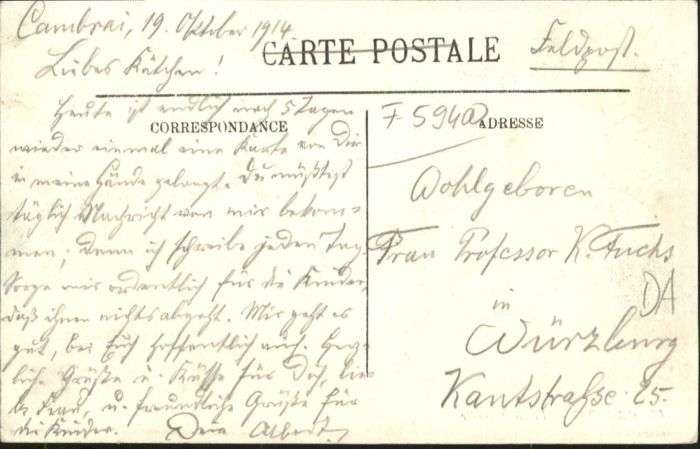 Cambrai, 19. Oktober 1914
CARTE POSTALE
Feldpost.
Liebes Kätchen!
CORRESPONDANCE
Heute ist endlich nach 5 Tagen
wieder einmal eine Karte von Dir
in meine Hände gelangt. Du müßtest
täglich Nachricht von mir bekom=
men, denn ich schreibe jeden Tag.
Sorge mir ordentlich für die Kinder,
daß ihnen nichts abgeht. Mir geht es
gut, bei Euch hoffentlich auch. Herz-
liche Grüße u. Küsse für Dich, lie-
be Frau, u. freundliche Grüße für
die Kinder. Dein Albert
F 594a
ADRESSE
Wohlgeboren
Frau Professor K. Fuchs
in
Würzburg
Kantstraße 25.
DA